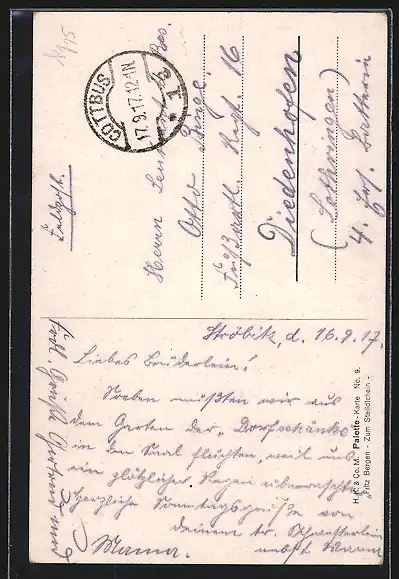 Feldpost.
COTTBUS
17.9.17.12-1N
* 1 b
Herrn Leutnant d. Res.
Otto Runge
Fußartl. Regt. 16
Diedenhofen
(Lothringen)
4. Ers. Batterie
H. K. & Co. M. Palette-Karte No. 9.
"Fritz Bergen - Zum Stelldichein -
Ströbitz, d. 16.9.17.
Liebes Brüderlein!
Soeben mußten wir aus
dem Garten der „Dorfschänke"
in den Saal flüchten, weil uns
ein plötzlicher Regen überraschte.
Herzliche Sonntagsgrüße von
deinem tr. Schwesterlein
nebst Mann
Mama.
Herzl. Gruß